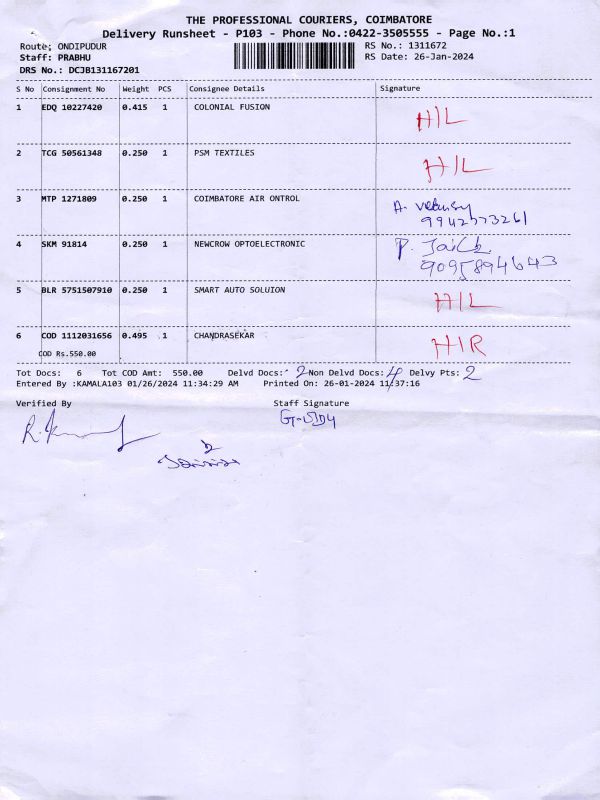 THE PROFESSIONAL COURIERS, COIMBATORE
Delivery Runsheet - P103 - Phone No.:0422-3505555 - Page No.:1
Route: ONDIPUDUR RS No.: 1311672
Staff: PRABHU RS Date: 26-Jan-2024
DRS No.: DCJB131167201
S No Consignment No Weight PCS Consignee Details Signature
1 EDQ 10227420 0.415 1 COLONIAL FUSION H/L
2 TCG 50561348 0.250 1 PSM TEXTILES H/L
3 MTP 1271809 0.250 1 COIMBATORE AIR ONTROL A.
4 SKM 91814 0.250 1 NEWCROW OPTOELECTRONIC P.
9095894643
5 BLR 5751507910 0.250 1 SMART AUTO SOLUION H/L
6 COD 1112031656 0.495 1 CHANDRASEKAR H/R
COD Rs.550.00
Tot Docs: 6 Tot COD Amt: 550.00 Delvd Docs: 2 Non Delvd Docs: 4 Delvy Pts: 2
Entered By :KAMALA103 01/26/2024 11:34:29 AM Printed On: 26-01-2024 11:37:16
Verified By Staff Signature